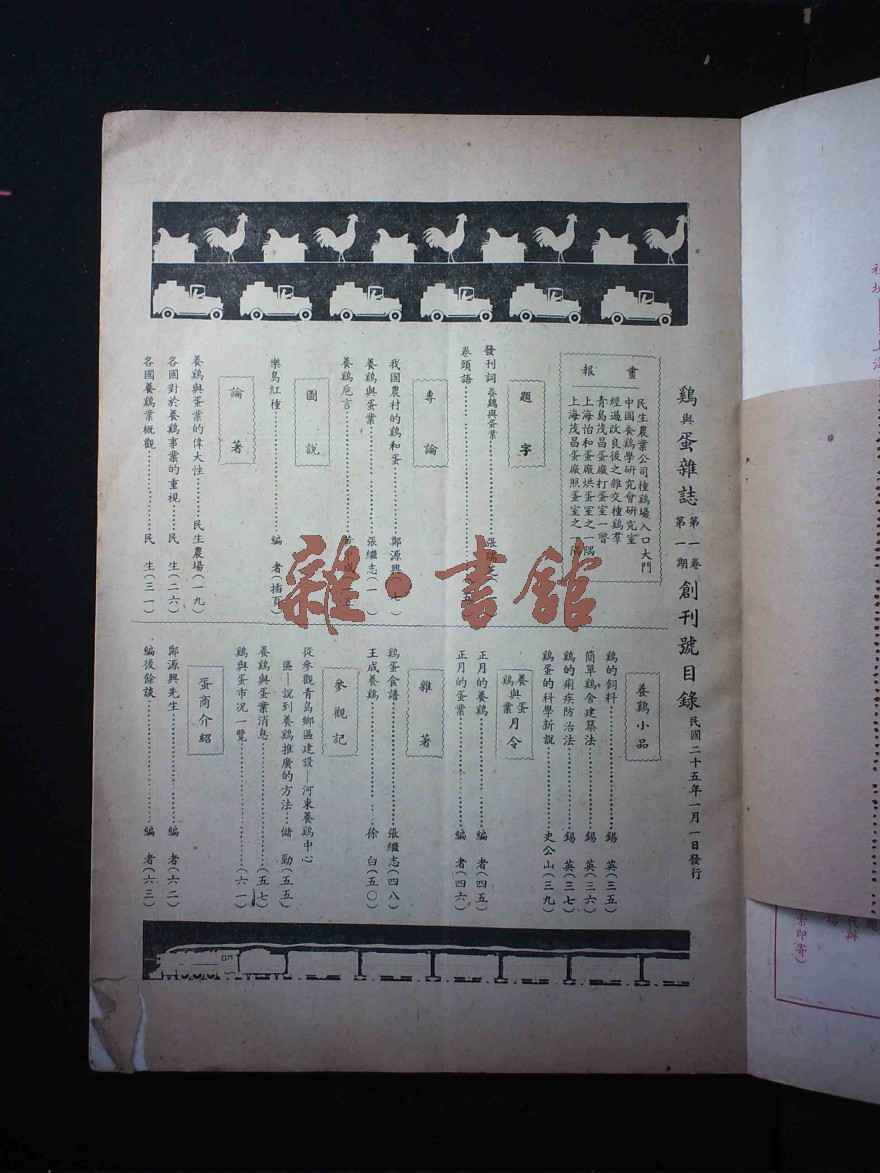 鷄與蛋雜誌 第一卷 第一期 創刊號目錄 民國二十五年一月一日發行
畫報
民生農業公司種鷄場入口大門
中國養鷄學研究會研究室
經過改良後之雜交種鷄羣
青島茂昌蛋廠打蛋室一瞥
上海怡和蛋廠烘蛋室之一隅
上海茂昌蛋廠照蛋室之一隅
題字
發刊詞 養鷄與蛋業
卷頭語
專論
我國農村的鷄和蛋 鄭源興
養鷄與蛋業 張繼志
養鷄卮言
圖說
樂島紅種 編者(插頁)
論著
養鷄與蛋業的偉大性 民生農場(一九)
各國對於養鷄事業的重視 民生(二六)
各國養鷄業概觀 民生(三一)
養鷄小品
鷄的飼料 錫英(三五)
簡單鷄舍建築法 錫英(三六)
鷄的痢疾防治法 錫英(三七)
鷄蛋的科學新說 史公山(三九)
養鷄與蛋業月令
正月的養鷄 編者(四五)
正月的蛋業 編者(四六)
雜著
鷄蛋食譜 張繼志(四八)
王成養鷄 徐白(五〇)
參觀記
從參觀青島鄉區建設—河東養鷄中心
區—說到養鷄推廣的方法 儲勁(五五)
養鷄與蛋業消息 (五七)
鷄與蛋市况一覽 (六一)
蛋商介紹
鄭源興先生 編者(六二)
編後餘談 編者(六三)
雜·書館